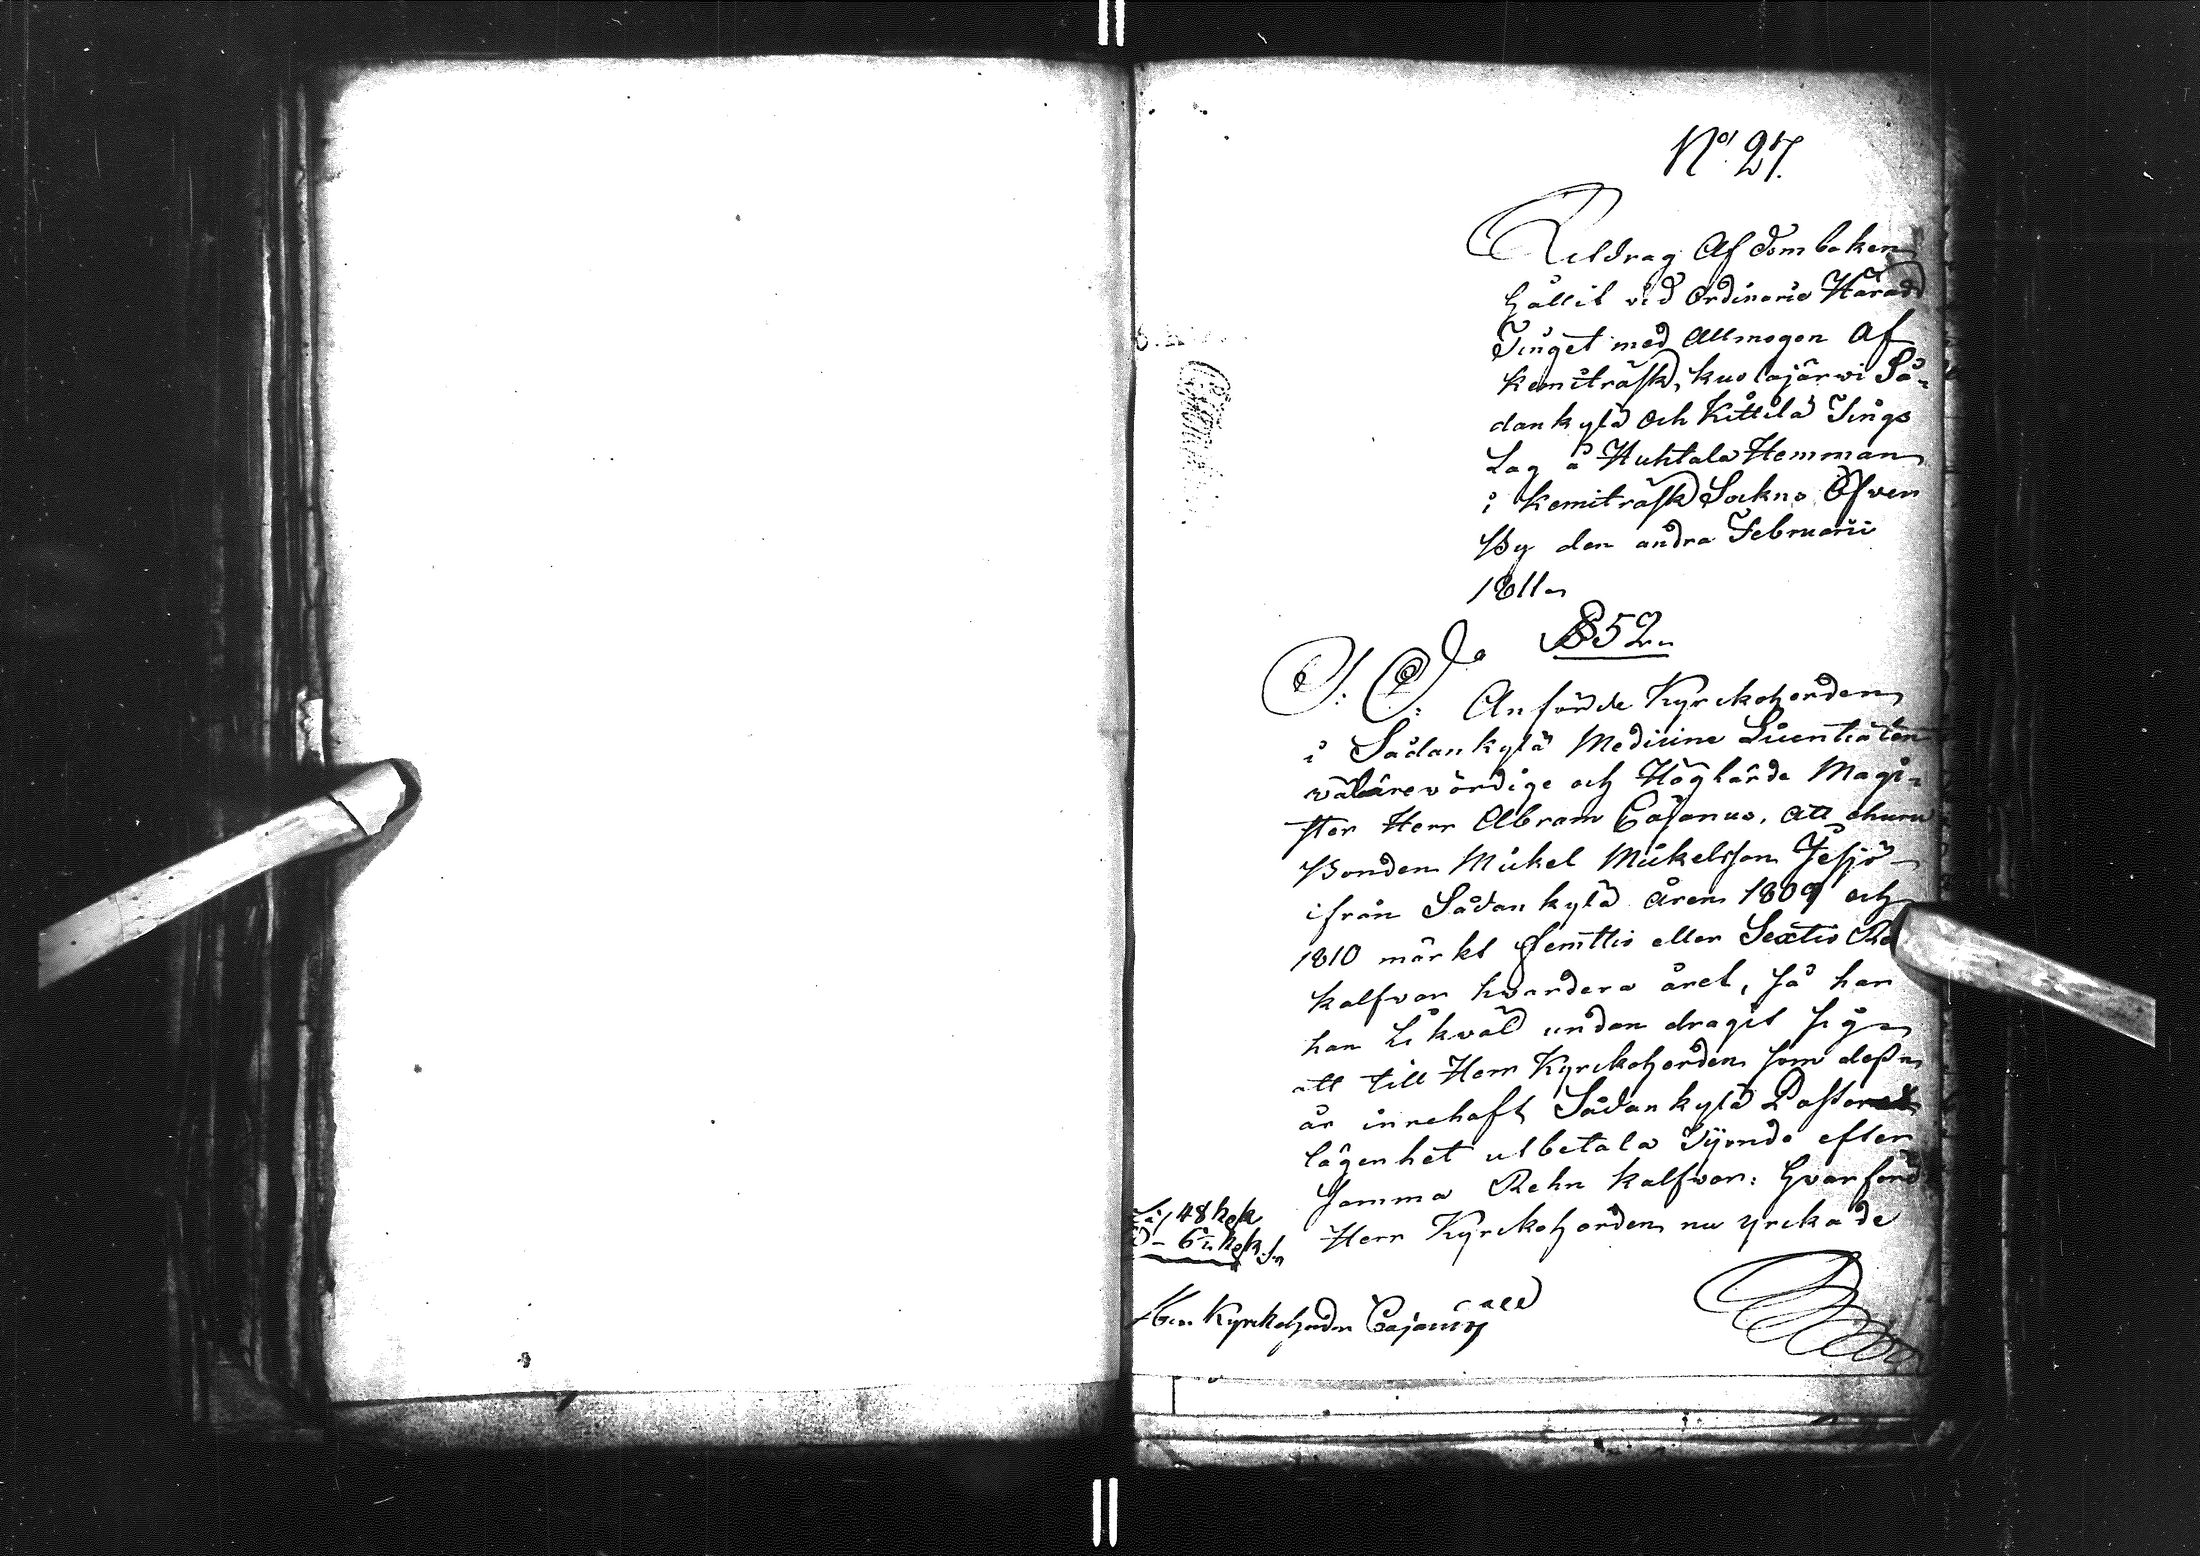 No 27.
Utdrag Af Domboken
hållit vid Ordinarie Härads
Tinget med Allmogen Af
Kemiträsk, Kuolajärvi So-
dankylä och Kittilä Tings
Lag å Huhtala Hemman
i Kemiträsk Sockns Öfwer
By den andra Februarii
1811.
§ 52.
S: D: Anförde Kyrckoherden
i Sådankylä Medicine Licentiaten
wälärevördige och Höglärde Magi-
ster Herr Abram Cajanus, att ehuru
Bonden Mickel Mickelsson Jesiö
ifrån Sådankylä åren 1809 och
1810 märkt femttio eller Sextio Re
kalfvar hvardera året, så har
han Likväl undandragit sig
att till Herr Kyrckoherden som dessa
år innehaft Sådankylä Pastorat
lägenhet utbetala Tijonde efter
samma Rehn kalfvar: hvarföre
Herr Kyrckoherden nu yrckade
48 kpk
6 kpk
Herr Kyrckoherden Cajanus